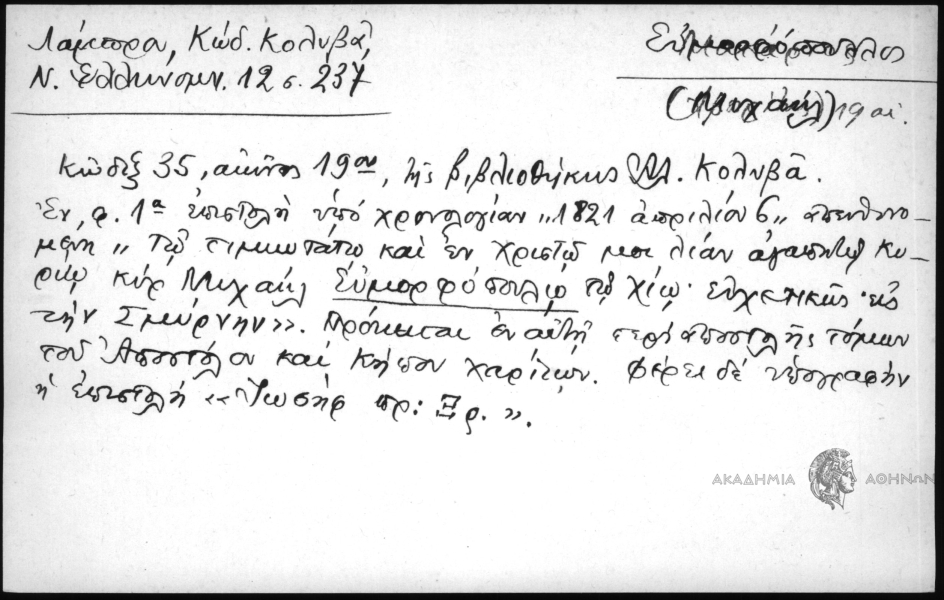 Λάμπρου, Κώδ. Κολυβᾶ,
Ν. Ἑλληνομν. 12 σ. 237
Εὐμορφόπουλλος
(Μιχαήλ) 19 αἰ.
Κῶδιξ 35, αἰῶνος 19ου, τῆς βιβλιοθήκης Ἀλ. Κολυβᾶ.
Ἐν φ. 1α ἐπιστολὴ ὑπὸ χρονολογίαν „1821 ἀπριλίου 6„ ἀπευθυνο-
μένη „ Τῷ τιμιωτάτῳ καὶ ἐν Χριστῷ μοι λίαν ἀγαπητῷ κυ-
ρίῳ κὺρ Μιχαὴλ Εὐμορφόπουλῳ τῷ Χίῳ· εὐχετικῶς· εἰς
τὴν Σμύρνην». Πρόκειται ἐν αὐτῇ περὶ ἀποστολῆς τόμων
τοῦ Ἀποστόλου καὶ Κήπου χαρίτων. Φέρει δὲ ὑπογραφὴν
ἡ ἐπιστολὴ «Ἰωσὴφ πρ: Ξρ.».
ΑΚΑΔΗΜΙΑ ΑΘΗΝΩΝ